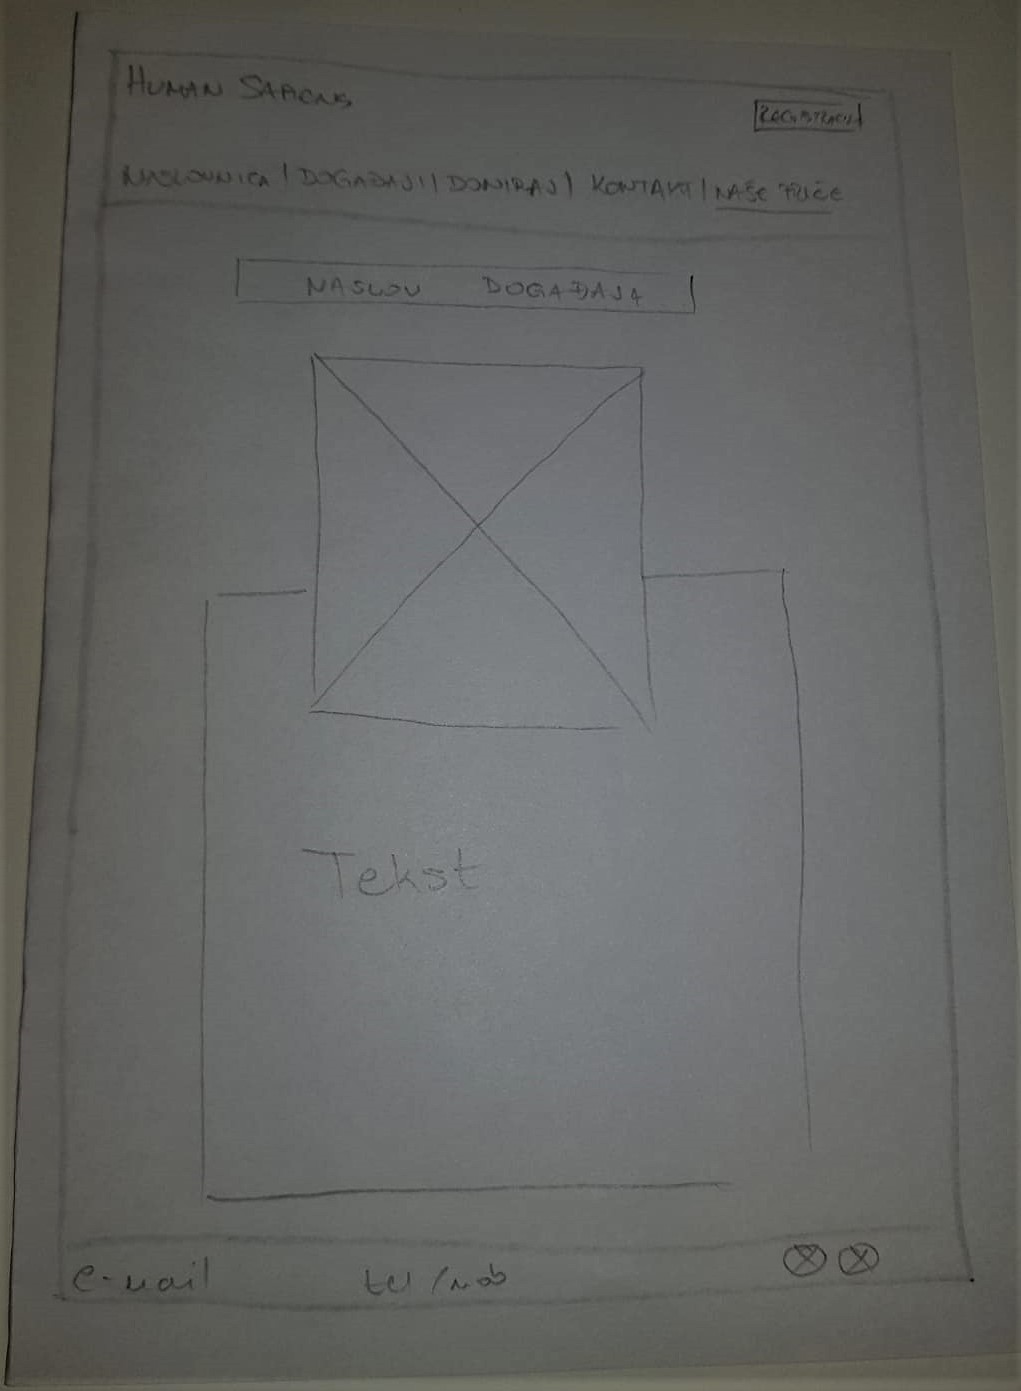 HUMAN SAPIENS
REGISTRACIJA
NASLOVNICA | DOGAĐAJI | DONIRAJ | KONTAKT | NAŠE PRIČE
NASLOV DOGAĐAJA
Tekst
e-mail tel/mob